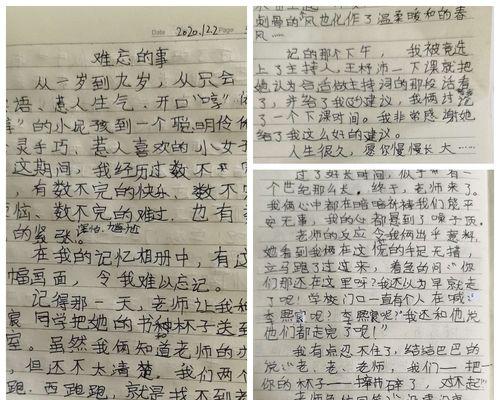 2020.12.2
难忘的事
从一岁到九岁，从只会
语、惹人生气、开口“嘻”
”的小屁孩到一个聪明伶
灵手巧、惹人喜欢的小女子
这期间，我经历过数不
，有数不完的快乐、数不
恼、数不完的难过，也有
的紧张。
在我的记忆相册中，有
幅画面，令我难以忘记。
记得那一天，老师让我和
同学把她的书和杯子送到
室。虽然我俩知道老师的办
，但还不太清楚，我们两个
跑、西跑跑，就是找不到
刺骨的风也化作了温柔暖和的春
风……
记的那个下午，我被竞选
上了主持人，王梓 一下课就把
她认为合适做主持词的那段话看
了，并给了我 建议，我俩讨论
了一个下课时间。我非常感谢她
给了我这么好的建议。
人生很久，愿你慢慢长大……
过了好长时间，似乎有一
个世纪那么长。终于，老师来了。
我俩心中都在暗暗祈祷我们能平
安无事，我的心都提到了嗓子顶。
老师的反应令我俩出乎意料，
她看到我俩在这慌的手足无措，
立马跑了过来，着急的问：“你
们那还在这里呀？我还以为早就走
了呢！学校门口一直有个人在喊
李熙宸呢？李熙宸呢？”我还和他说
他们都走完了呢！”
我有点忍不住了，结结巴巴的
说：“老、老、老师，我们一把一
你的杯子——摔碎了，对不起”